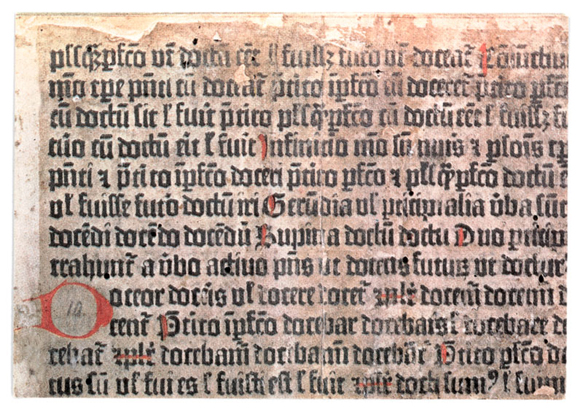 pllq̄ꝫpfcō vt̄ doctū eēt ł fuiſſꝫ futo vt̄ doceat̄ Cōiunctiu
mō tpe pn̄ti cū doceat̄ p̄tito īpfcō cū doceret̄ p̄tito pfcō
cū doctū ſit ł fuit p̄tito pllq̄ꝫpfcō cū doctū eēt ł fuiſſꝫ fu
tūo cū doctū eīt ł fuit Infinitio mō ſn̄ nuīs ⁊ pſoīs tp
pn̄ti ⁊ p̄tito īpfcō doceri p̄tito pfcō ⁊ pllq̄ꝫpfcō doctū e
vl fuiſſe futo doctū iri Gerūdia vl pticipialia v̄ba ſūt
docēdi docēdo docēdū Supina doctū doctu Duo pticip
trahunt̄ a v̄bo actiuo pn̄s ut docens futurꝫ ut doctur
Doceor docēis vł docere docet̄ ⁊plr̄ docem̄ docemini d
cent̄ P̄tito īpfcō docebar docebaris ł docebare do
cebat̄ ⁊plr̄ docebam̄ docebamī docebāt̄ P̄tito pfcō do
ctus ſū vł fui es ł fuiſti eſt ł fuit ⁊plr̄ docti ſumꝰ ł fuim